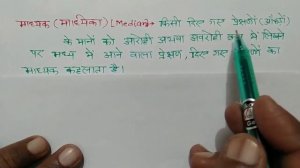 माध्यक (माध्यिका) [Median]→ किसी दिए गए प्रेक्षणों (आँकड़ों)
के मानों को आरोही अथवा अवरोही क्रम में लिखने
पर मध्य में आने वाला प्रेक्षण, दिए गए का
माध्यक कहलाता है।